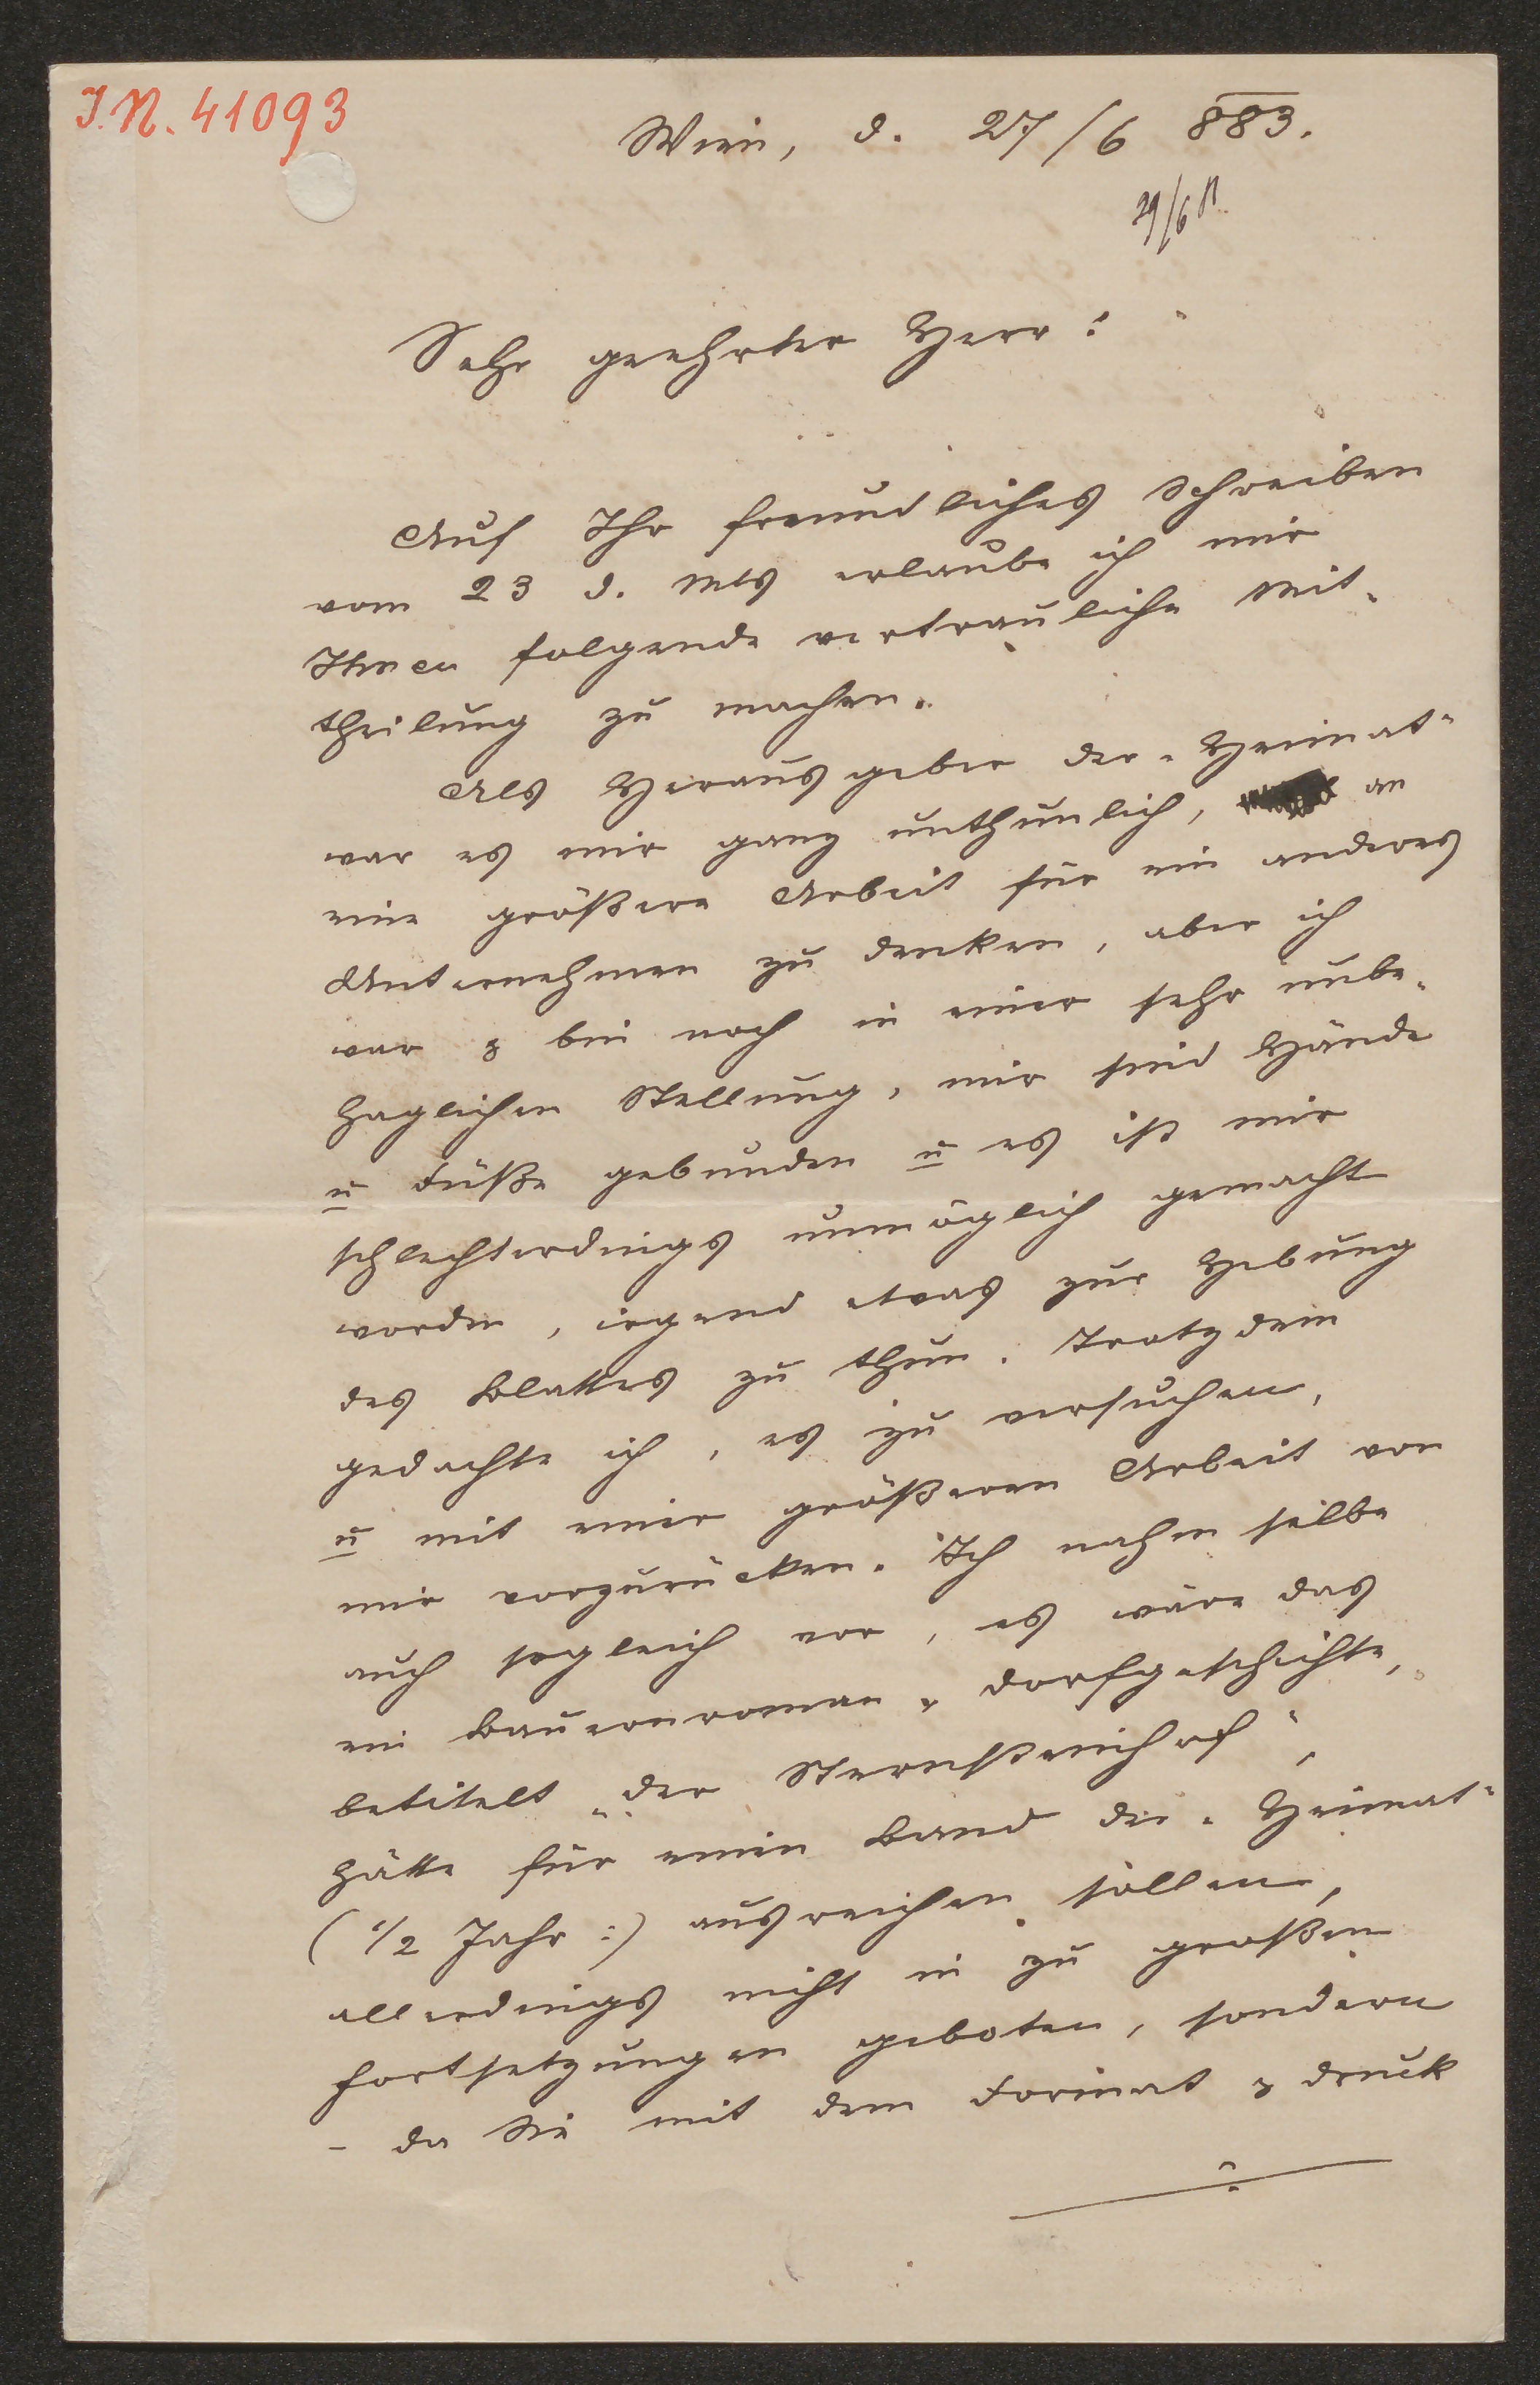 I.N. 41093
Wien, d. 27/6 883.
29/6
Sehr geehrter Herr!
Auf Ihr freundliches Schreiben
vom 23 d. Mts erlaube ich mir
Ihnen folgende vertrauliche Mit-
theilung zu machen.
Als Herausgeber der „Heimat“
war es mir ganz unthunlich, an
eine größere Arbeit für ein anderes
Unternehmen zu denken, aber ich
war & bin noch in einer sehr unbe-
haglichen Stellung, mir sind Hände
u Füße gebunden u es ist mir
schlechterdings unmöglich gemacht
worden, irgend etwas zur Hebung
des Blattes zu thun. Trotzdem
gedachte ich, es zu versuchen,
u mit einer größeren Arbeit von
mir vorzurücken. Ich nahm selbe
auch sogleich vor, es wäre das
ein Bauernroman, Dorfgeschichte,
betitelt „Der Sternsteinhof“,
hätte für einen Band der „Heimat“
(1/2 Jahr:) ausreichen sollen,
allerdings nicht in zu großen
Fortsetzungen geboten, sondern
– da Sie mit dem Format & Druck